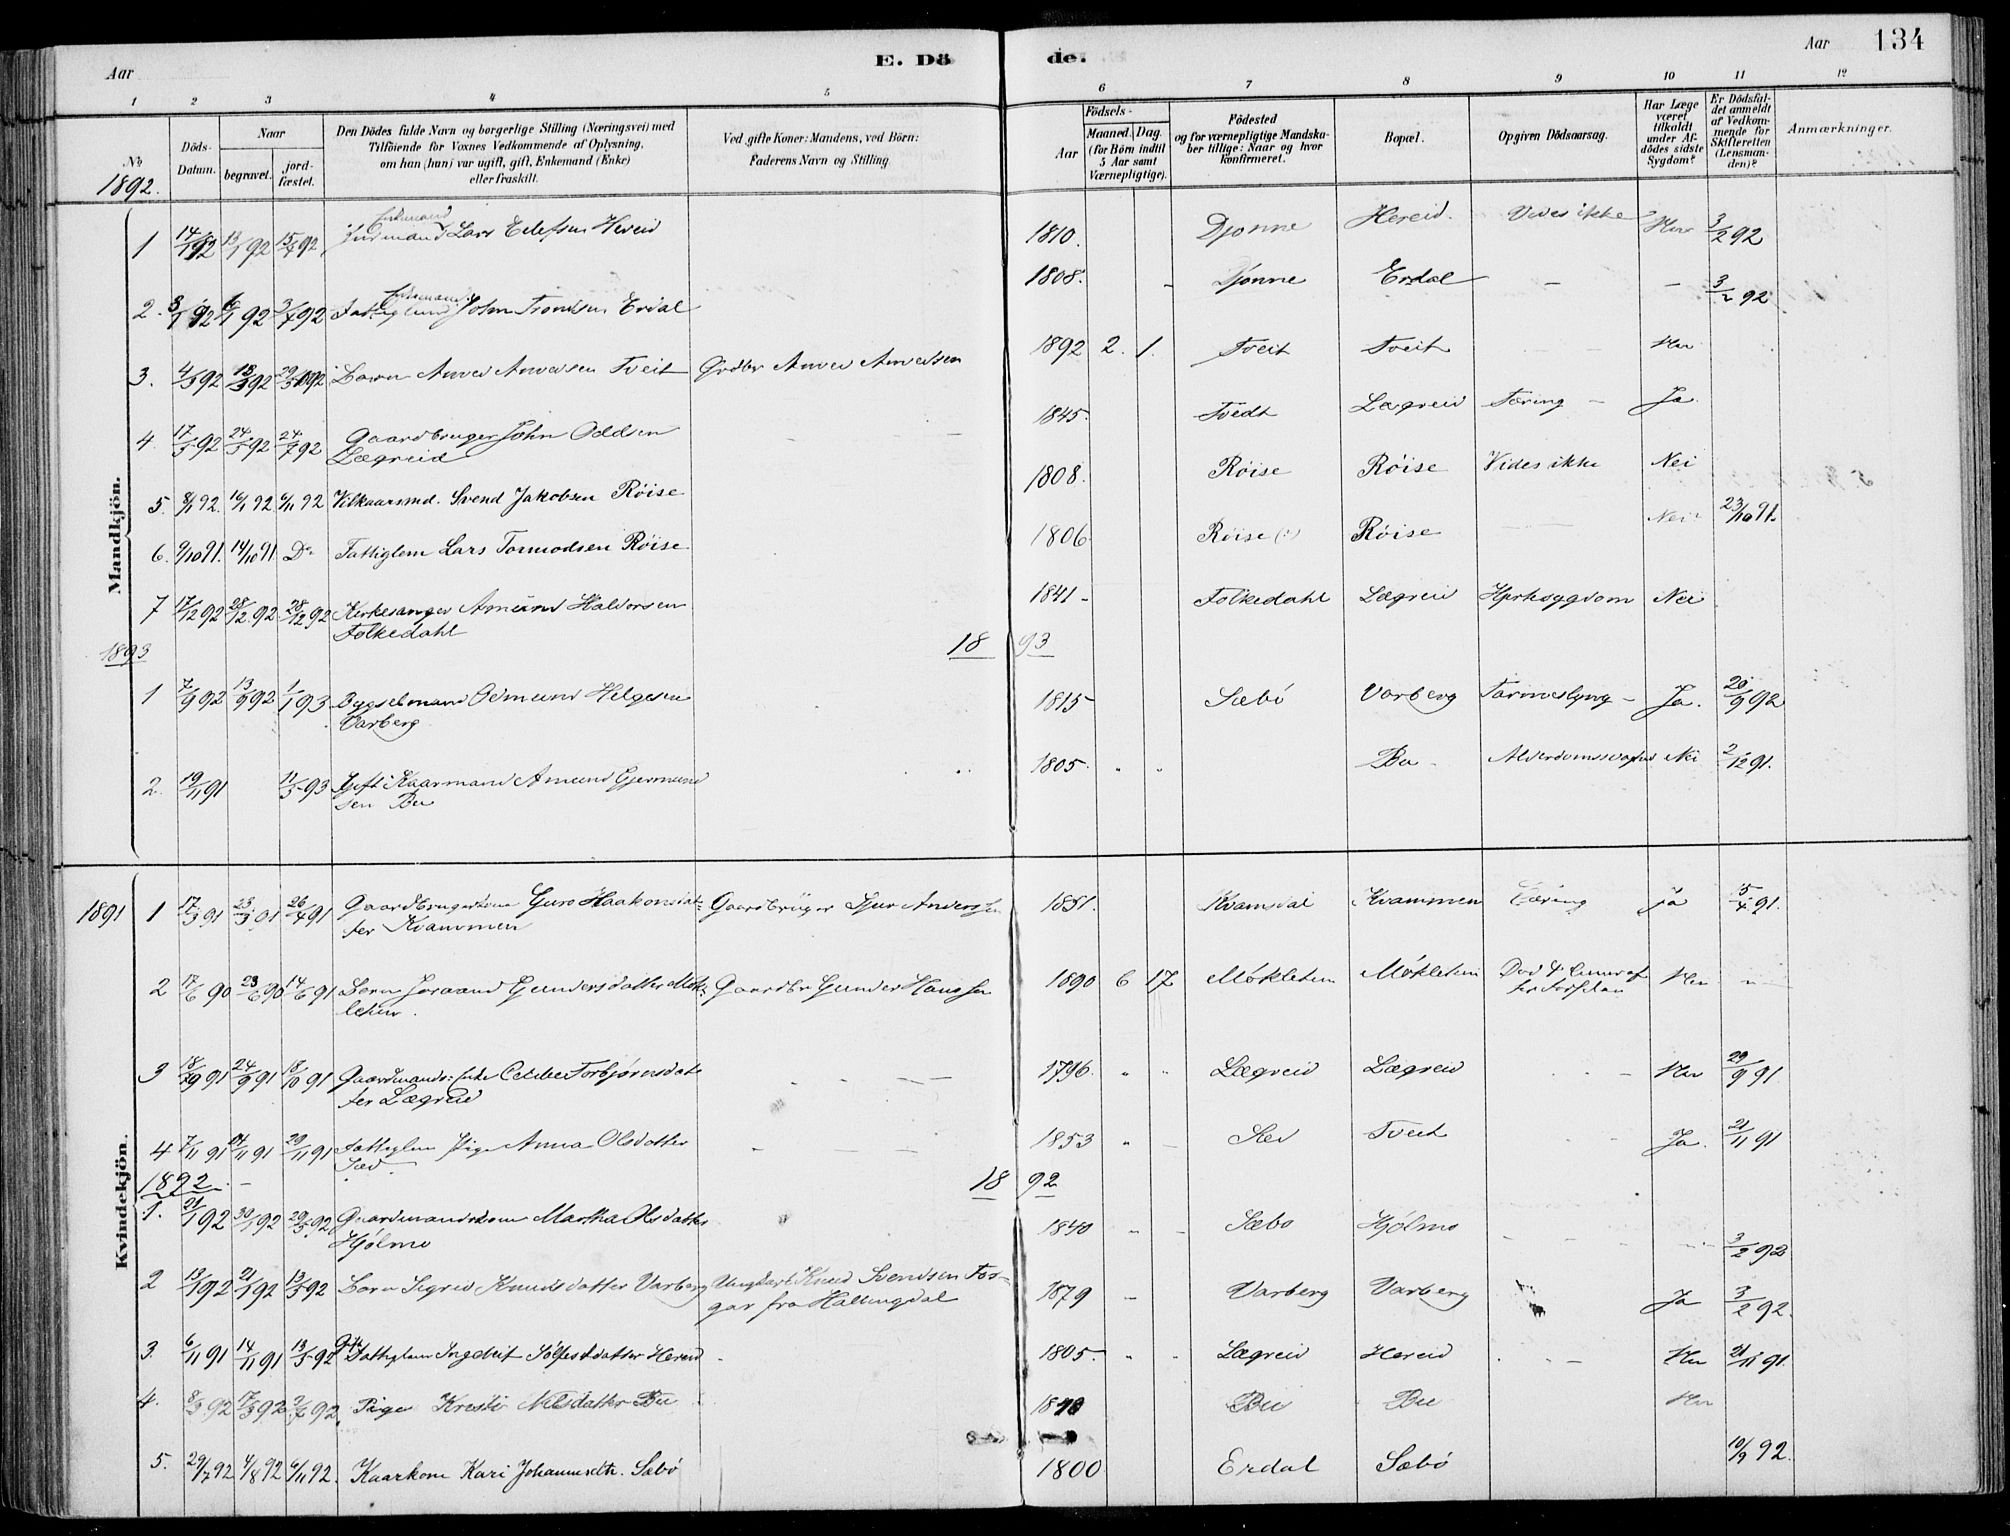 Aar
E. Dö
de.
Aar 134
1 2 3 4 5 6 7 8 9 10 11 12
No
Döds-Datum.
Naar
begravet.
jord-fæstet.
Den Dödes fulde Navn og borgerlige Stilling (Næringsvei) med
Tilföiende for Voxnes Vedkommende af Oplysning,
om han (hun) var ugift, gift, Enkemand (Enke)
eller fraskilt.
Ved gifte Koner: Mandens, ved Börn:
Faderens Navn og Stilling.
Födsels-
Aar
Maaned. Dag.
(for Börn indtil
5 Aar samt
Værnepligtige).
Födested
og for værnepligtige Mandska-
ber tillige: Naar og hvor
konfirmeret.
Bopæl.
Opgiven Dödsaarsag.
Har Læge
været
tilkaldt
under Af-
dödes sidste
Sygdom?
Er Dödsfal-
det anmeldt
af Vedkom-
mende for
Skifteretten
(Lensman-
den)?
Anmærkninger.
1892.
Mandkjön.
1 14/1 92 13/1 92 15/7 92 Enkemand Lars Eilefsen Hereid 1810. Djonne Hereid. Vides ikke 3/2 92
2. 3/1 92 6/1 92 3/7 92 Enkemand John Trondsen Erdal 1808. Djönne Erdal - - 3/2 92
3. 4/3 92 13/3 92 29/5 92 Barn Anved Anvedsen Tveit Grdbr Anved Anvedsen 1892 2. 1. Tveit Tveit
4. 17/5 92 24/5 92 24/7 92 Gaardbruger John Oddsen
Lægreid 1845. Tvedt Lægreid Tæring - Ja.
5. 8/1 92. 16/1 92 6/11 92 Vilkaarsmd. Svend Jakobsen Röise 1808. Röise Röise Vides ikke Nei
6. 9/10 91. 14/10 91 Do Fattiglem Lars Tormodsen Röise 1806 Röise (?) Röise Nei 23/10 91.
7 17/12 92 28/12 92 28/12 92 Kirkesanger Amund Haldorsen
Folkedahl 1841 - Folkedahl Lægreid Nei
1893 18 93
1 7/9 92 13/9 92 1/1 93 Bygselmand Odmund Helgesen
Varberg 1815 Sæbö Varberg Ja. 20/9 92
2. 19/11 91 11/5 93 Gift Kaarmand Amund Gjermund
sen Bu 1805. " " Bu Nei 2/12 91.
Kvindekjön.
1891 1 17/3 91 23/3 91 26/4 91 Gaardbrugerkone Guro Haakonsdat-
ter Kvammen Gaardbruger Sjur Anderssen 1851. Kvamsdal Kvammen Tæring Ja 5/4 91.
2 17/6 90 23/6 90 14/6 91 Barn Joraand Gundersdatter Mök-
letun. Gaardbr Gunder Hanssen 1890 6 17 Mökletun Mökletun Död 4 timer af
ter Födselen
3 18/9 91 24/9 91 18/10 91 Gaardmands: Enke Torbjörnsdat
ter Lægreid 1796. " " Lægreid Lægreid 29/9 91
4 7/11 91 14/11 91 29/11 91 Fattiglem Pige Anna Olsdatter
Sæd. 1853 " Tveit Ja. 21/11 91
1892. 18 92
1. 21/1 92 30/1 92 29/5 92 Gaardmandskone Martha Olsdatter
Hjölmo 1840 Sæbo Hjölmo 3/2 92
2 13/1 92 21/1 92 13/5 92 Barn Sigrid Knudsdatter Varberg Ungkarl Knud Svendsen Tor-
gar fra Hallingdal 1879 Varberg Varberg Ja 3/2 92.
3. 6/11 91 14/11 91 13/5 92 Fattiglem Ingebrit Sölfestdatter Hereid 1805. " " Lægreid Hereid 21/11 91.
4. 8/3 92 17/3 92 92 Pige Kresti Nilsdatter Bu Bu Bu
5. 29/7 92 4/8 92 6/11 92. Kaarkone Kari Johannesdtr. Sæbö 1800 Erdal Sæbö 10/9 92.